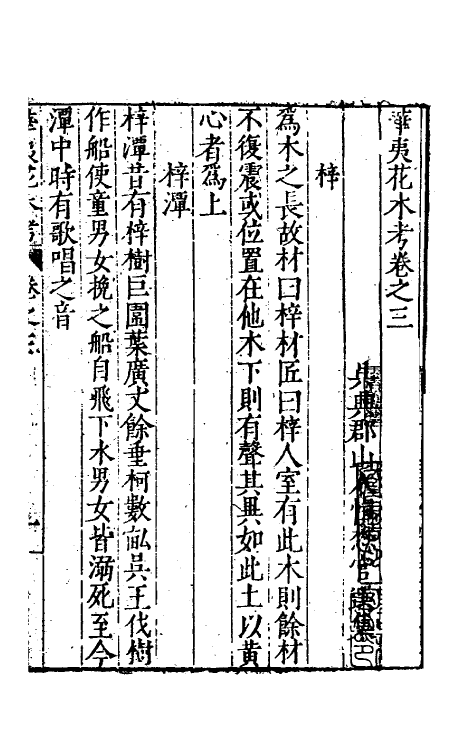 華夷花木考卷之三
吳興郡山人慎懋官選集
梓
爲木之長故材曰梓材匠曰梓人室有此木則餘材
不復震或位置在他木下則有聲其異如此土以黃
心者爲上
梓潭
梓潭昔有梓樹巨圍葉廣丈餘垂柯數畝吳王伐樹
作船使童男女挽之船自飛下水男女皆溺死至今
潭中時有歌唱之音
華夷花木考 卷之三 一